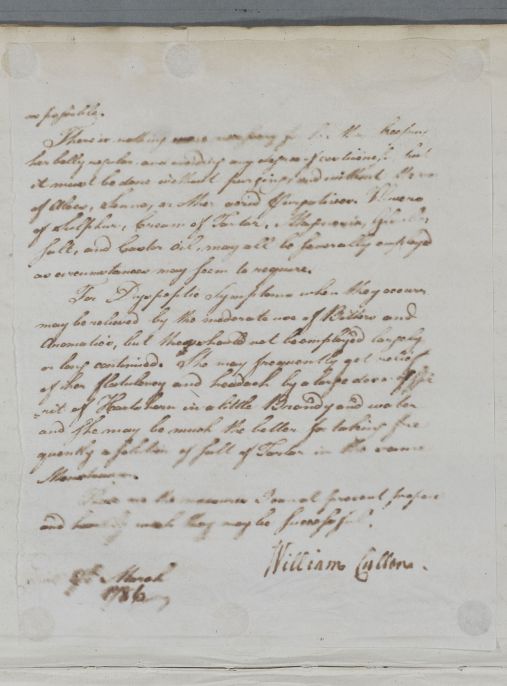 as possible.
There is nothing more necessary for her than keeping
her belly regular and avoiding any degree of costiveness but
it must be done without purging, and without the use
of Aloes, Senna, or other acrid Purgatives. Flowers
of Sulphur, Cream of Tartar, Magnesia, Glauber
Salt, and Castor Oil, may all be generally employed
as circumstances may seem to require.
For Dyspeptic Symptoms when they occur,
may be relieved by the moderate use of Bitters and
Aromatics, but these should not be employed largely
or long continued. She may frequently get relief
of her flatulency and headach by a large dose of Spi
=rit of Hartshorn in a little Brandy and water
and she may be much the better for taking fre
quently a solution of salt of Tartar in the same
Menstruum.
These are the measures I can at present propose
and wish they may be successful.
William Cullen.
9th March
1786